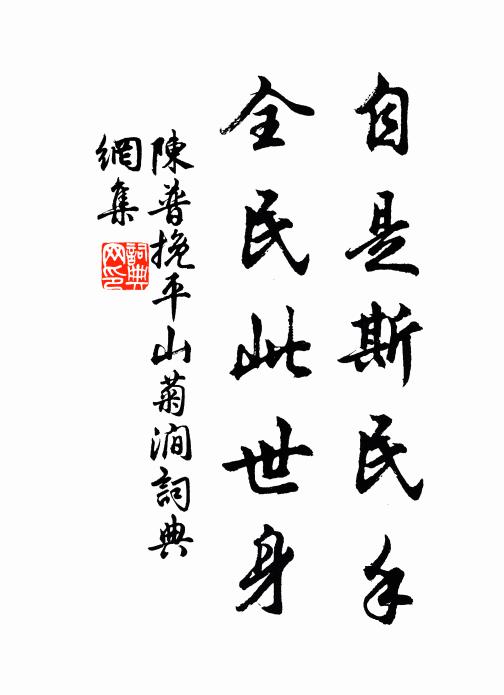 自是斯民
全民此世身
陳普挽平山菊澗詞典
網集
詞典
网印